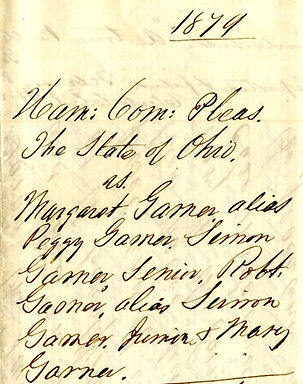 1879
Ham: Com: Pleas.
The State of Ohio.
vs.
Margaret Garner, alias
Peggy Garner, Simon
Garner, Senior, Robt.
Garner, alias Simon
Garner, Junior & Mary
Garner.